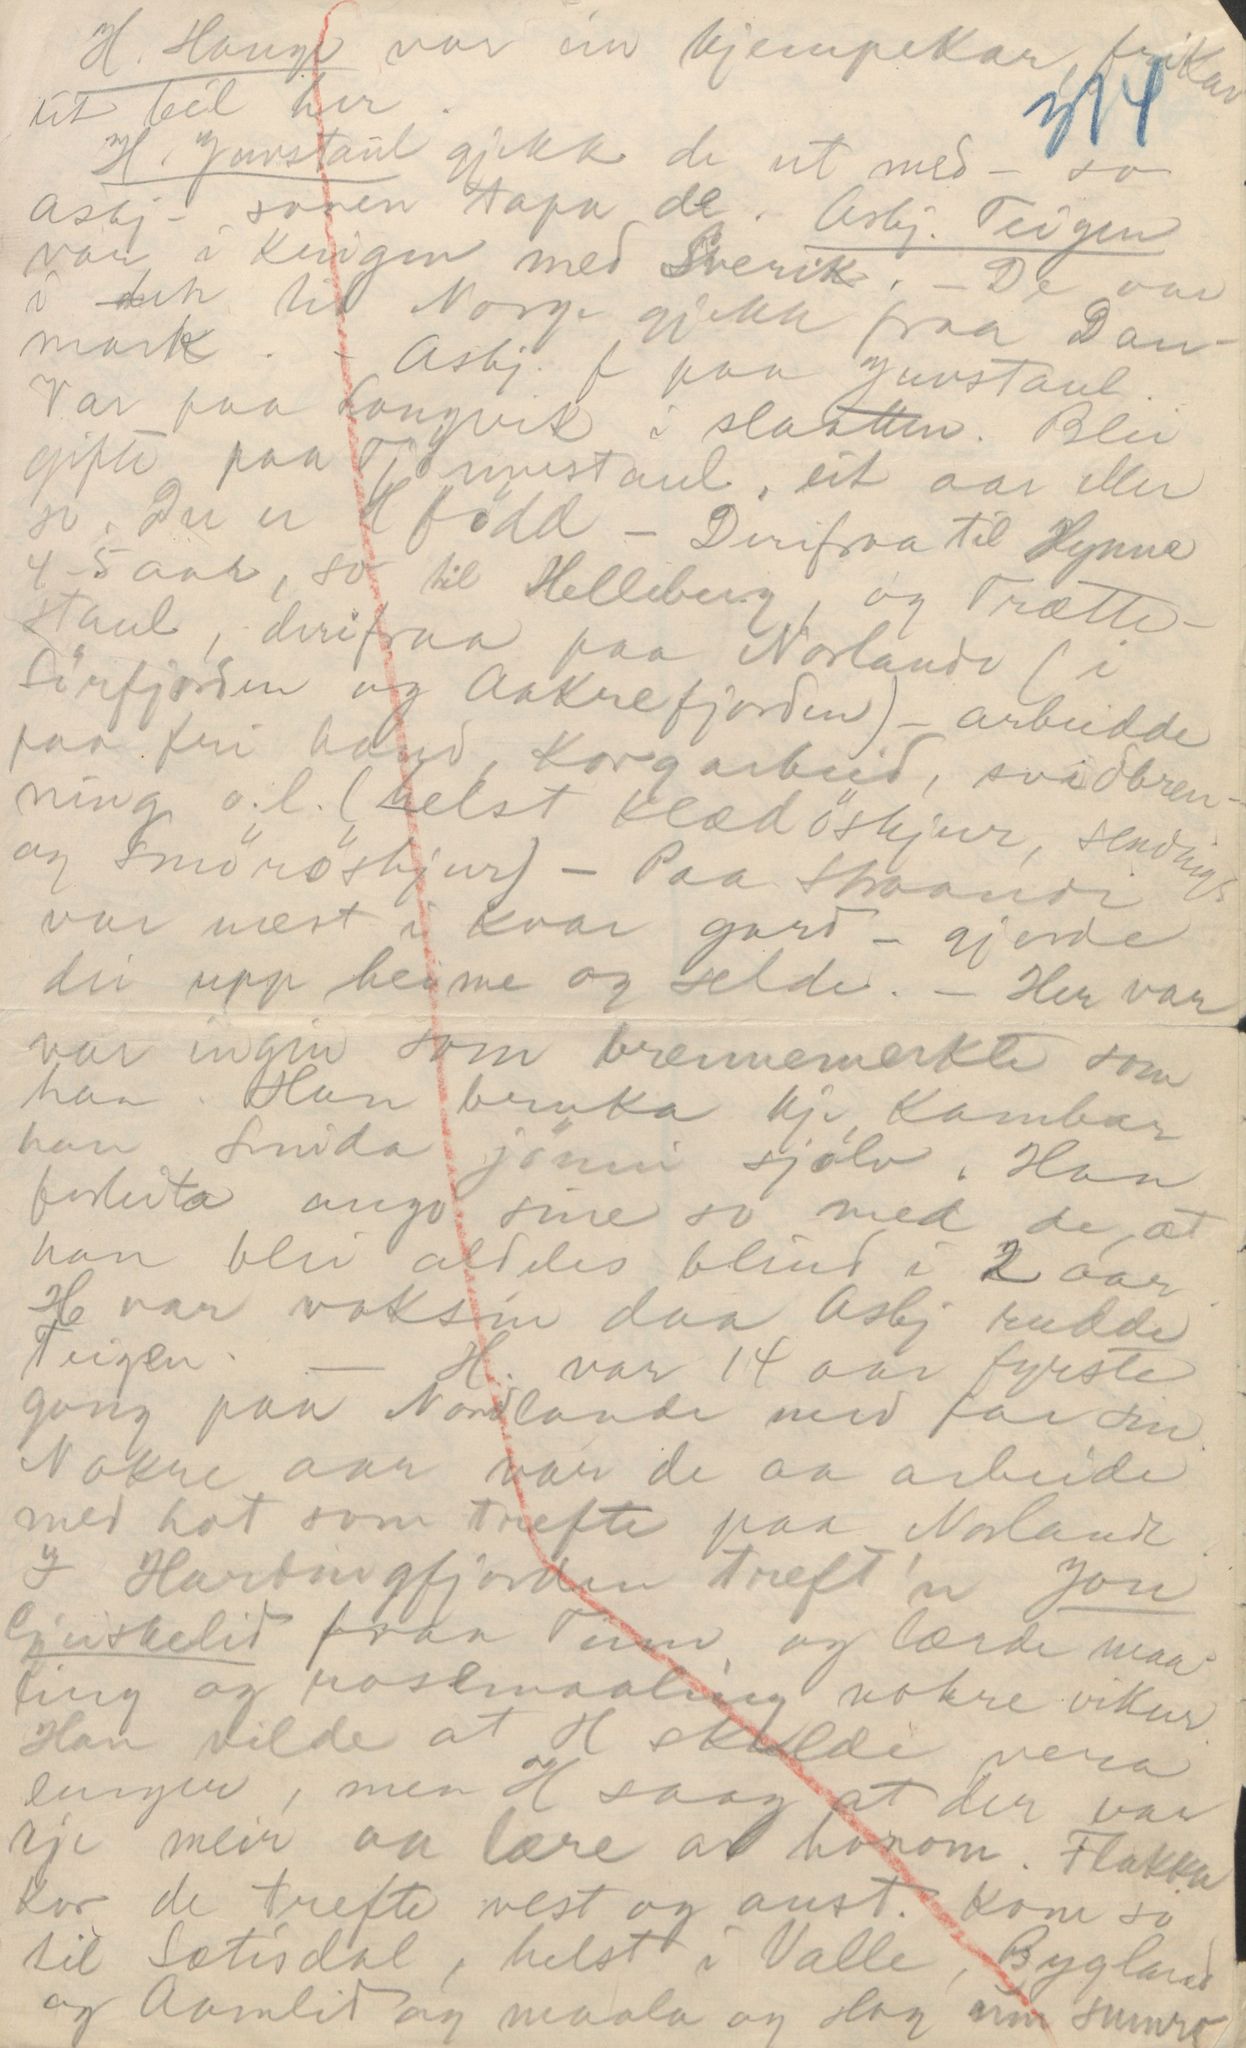 H. Haugi var ein kjempekar, frikar
til heil her.
314
H. Juvstaul gjekk de ut med - so
Asbj - sonen tapa de. Asbj. Teigen
var i krigen med Sverik. - De var
i den tid Norge gjekk fraa Dan-
mark. - Asbj. f paa Juvstaul.
Var paa Langvik i slaatten. Blei
gifte paa Tjønnestaul, eit aar eller
so. Der er H född - Derifraa til Hynne
4-5 aar, so til Helleberg, og Trætte-
staul, derifraa paa Norlande (i
Sörfjorden og Aakrefjorden) - arbeidde
paa fri hand, Korgarbeid, svidbren-
ning o.l. (helst klædöskjur, sendings
og Smöröskjur) - Paa Straandi
var mest i kvar gard - gjorde
dei upp heime og selde. - Her var
var ingin som brennemerkte som
han. Han bruka kje kambar
han Smida jönni sjölv. Han
forleita augo sine so med de, at
han blei aldeles blind i 2 aar.
H var voksin daa Asbj rudde
Teigen. - H. var 14 aar fyrste
gong paa Nordlande med far sin.
Nokre aar var de aa arbeide
med hot som trefte paa Norlande.
I Hardingfjorden treft'n Jon
Gjuskelid fraa Tinn, og lærde maa-
ling og rosemaaling nokre vikur.
Han vilde at H skulde vera
lenger, men H saag at der var
kje meir aa lære av honom. Flakka
kor de trefte vest og aust. Kom so
til Sætisdal, helst i Valle, Bygland
og Aamlid og maala og slog um sumre